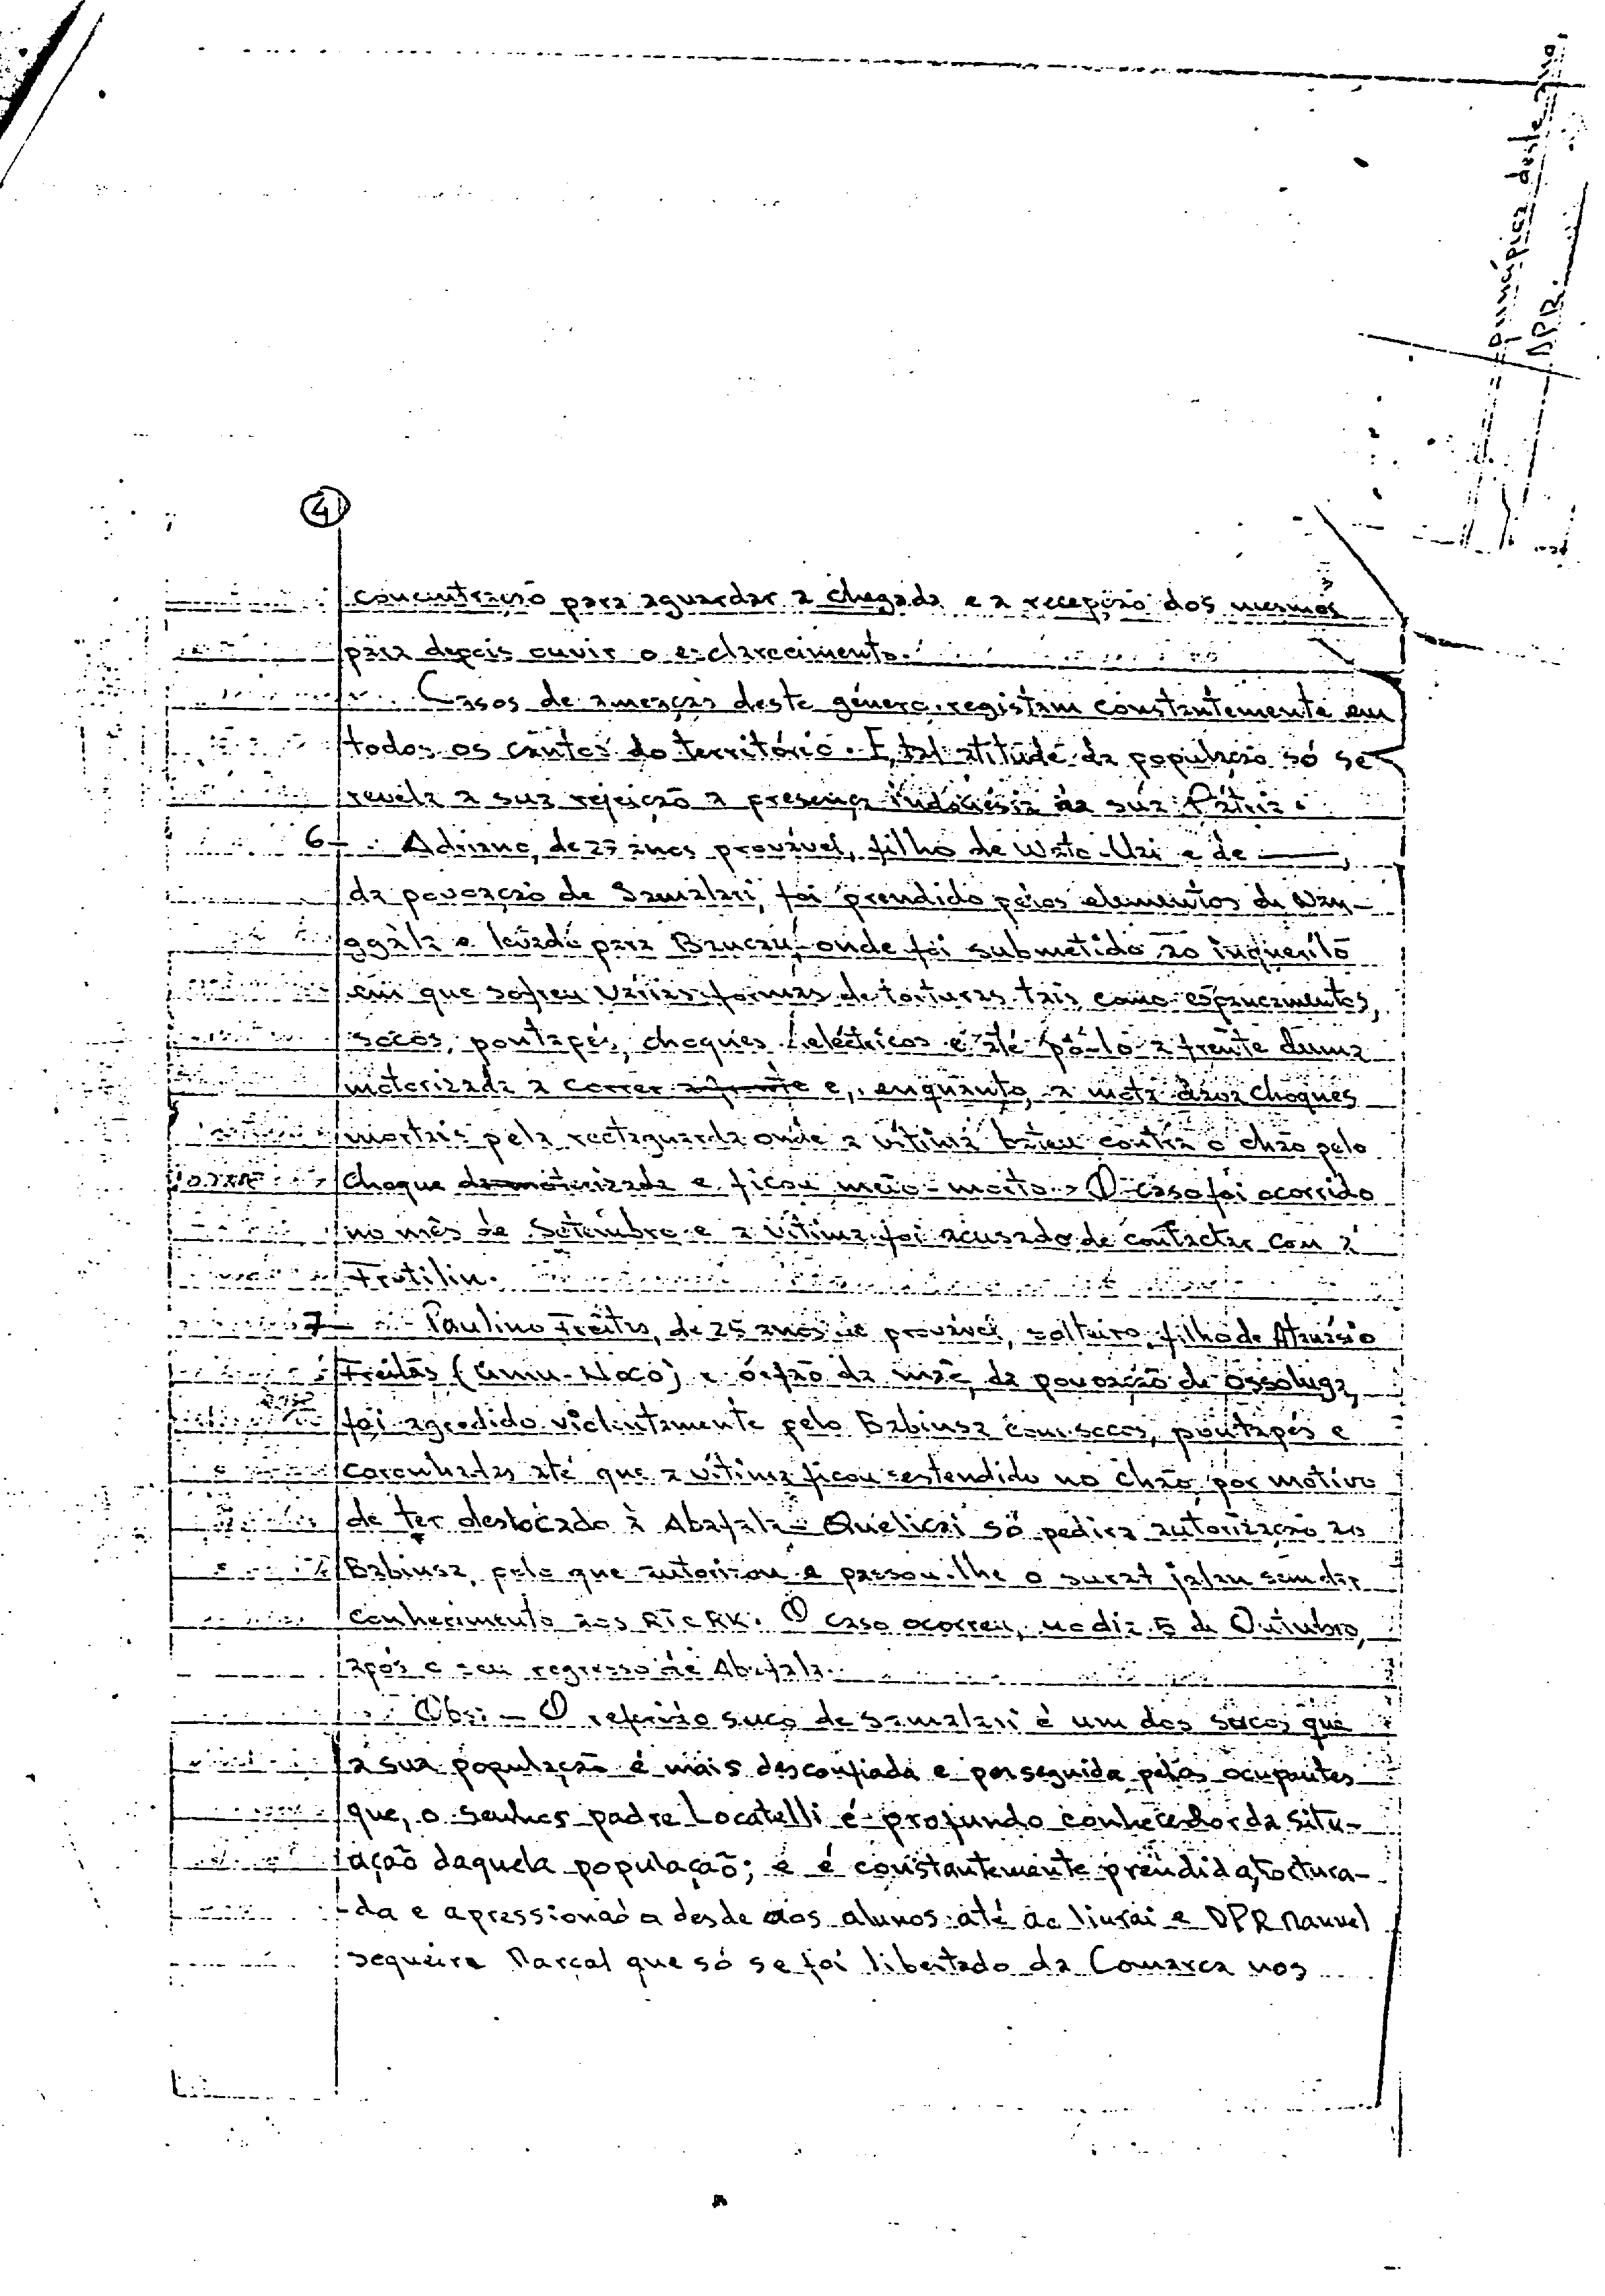 princípios deste
DPR.
4
concentração para aguardar a chegada e a recepção dos mesmos
para depois ouvir o esclarecimento.
Casos de ameaças deste género registam constantemente em
todos os cantos do território. E, tal atitude da população só se
revela a sua rejeição a presença indonésia na sua Pátria.
6- Adriano, de 27 anos provável, filho de Wato-Uai e de ——,
da povoação de Samalari, foi prendido pelos elementos da Nan-
ggàla e levado para Baucau, onde foi submetido ao inquerito
em que sofreu várias formas de torturas tais como espancamentos,
socos, pontapés, choques eléctricos e até pô-lo a frente duma
motorizada a correr a frente e, enquanto, a mota dava choques
mortais pela rectaguarda onde a vítima bateu contra o chão pelo
choque da motorizada e ficou meio-morto. O caso foi ocorrido
no mês de Setembro e a vítima foi acusado de contactar com a
Fretilin.
7- Paulino Freitas, de 25 anos de provável, solteiro, filho de Atanásio
Freitas (Gamu-Noco) e órfão da mãe, da povoação de Ossoluga,
foi agredido violentamente pelo Babinsa com socos, pontapés e
coronhadas até que a vítima ficou estendido no chão, por motivo
de ter deslocado à Abafala-Quelicai só pedira autorização ao
Babinsa, pelo que autorizou e passou-lhe o surat jalan sem dar
conhecimento aos RT e RK. O caso ocorreu, no dia 5 de Outubro,
após o seu regresso de Abafala.
Obs: - O referido suco de Samalari é um dos sucos que
a sua população é mais desconfiada e perseguida pelos ocupantes
que, o Senhor padre Locatelli é profundo conhecedor da situ-
ação daquela população; e é constantemente prendida, tortura-
-da e apressionada desde aos alunos até ao liurai e DPR Manuel
Sequeira Marçal que só se foi libertado da Comarca nos